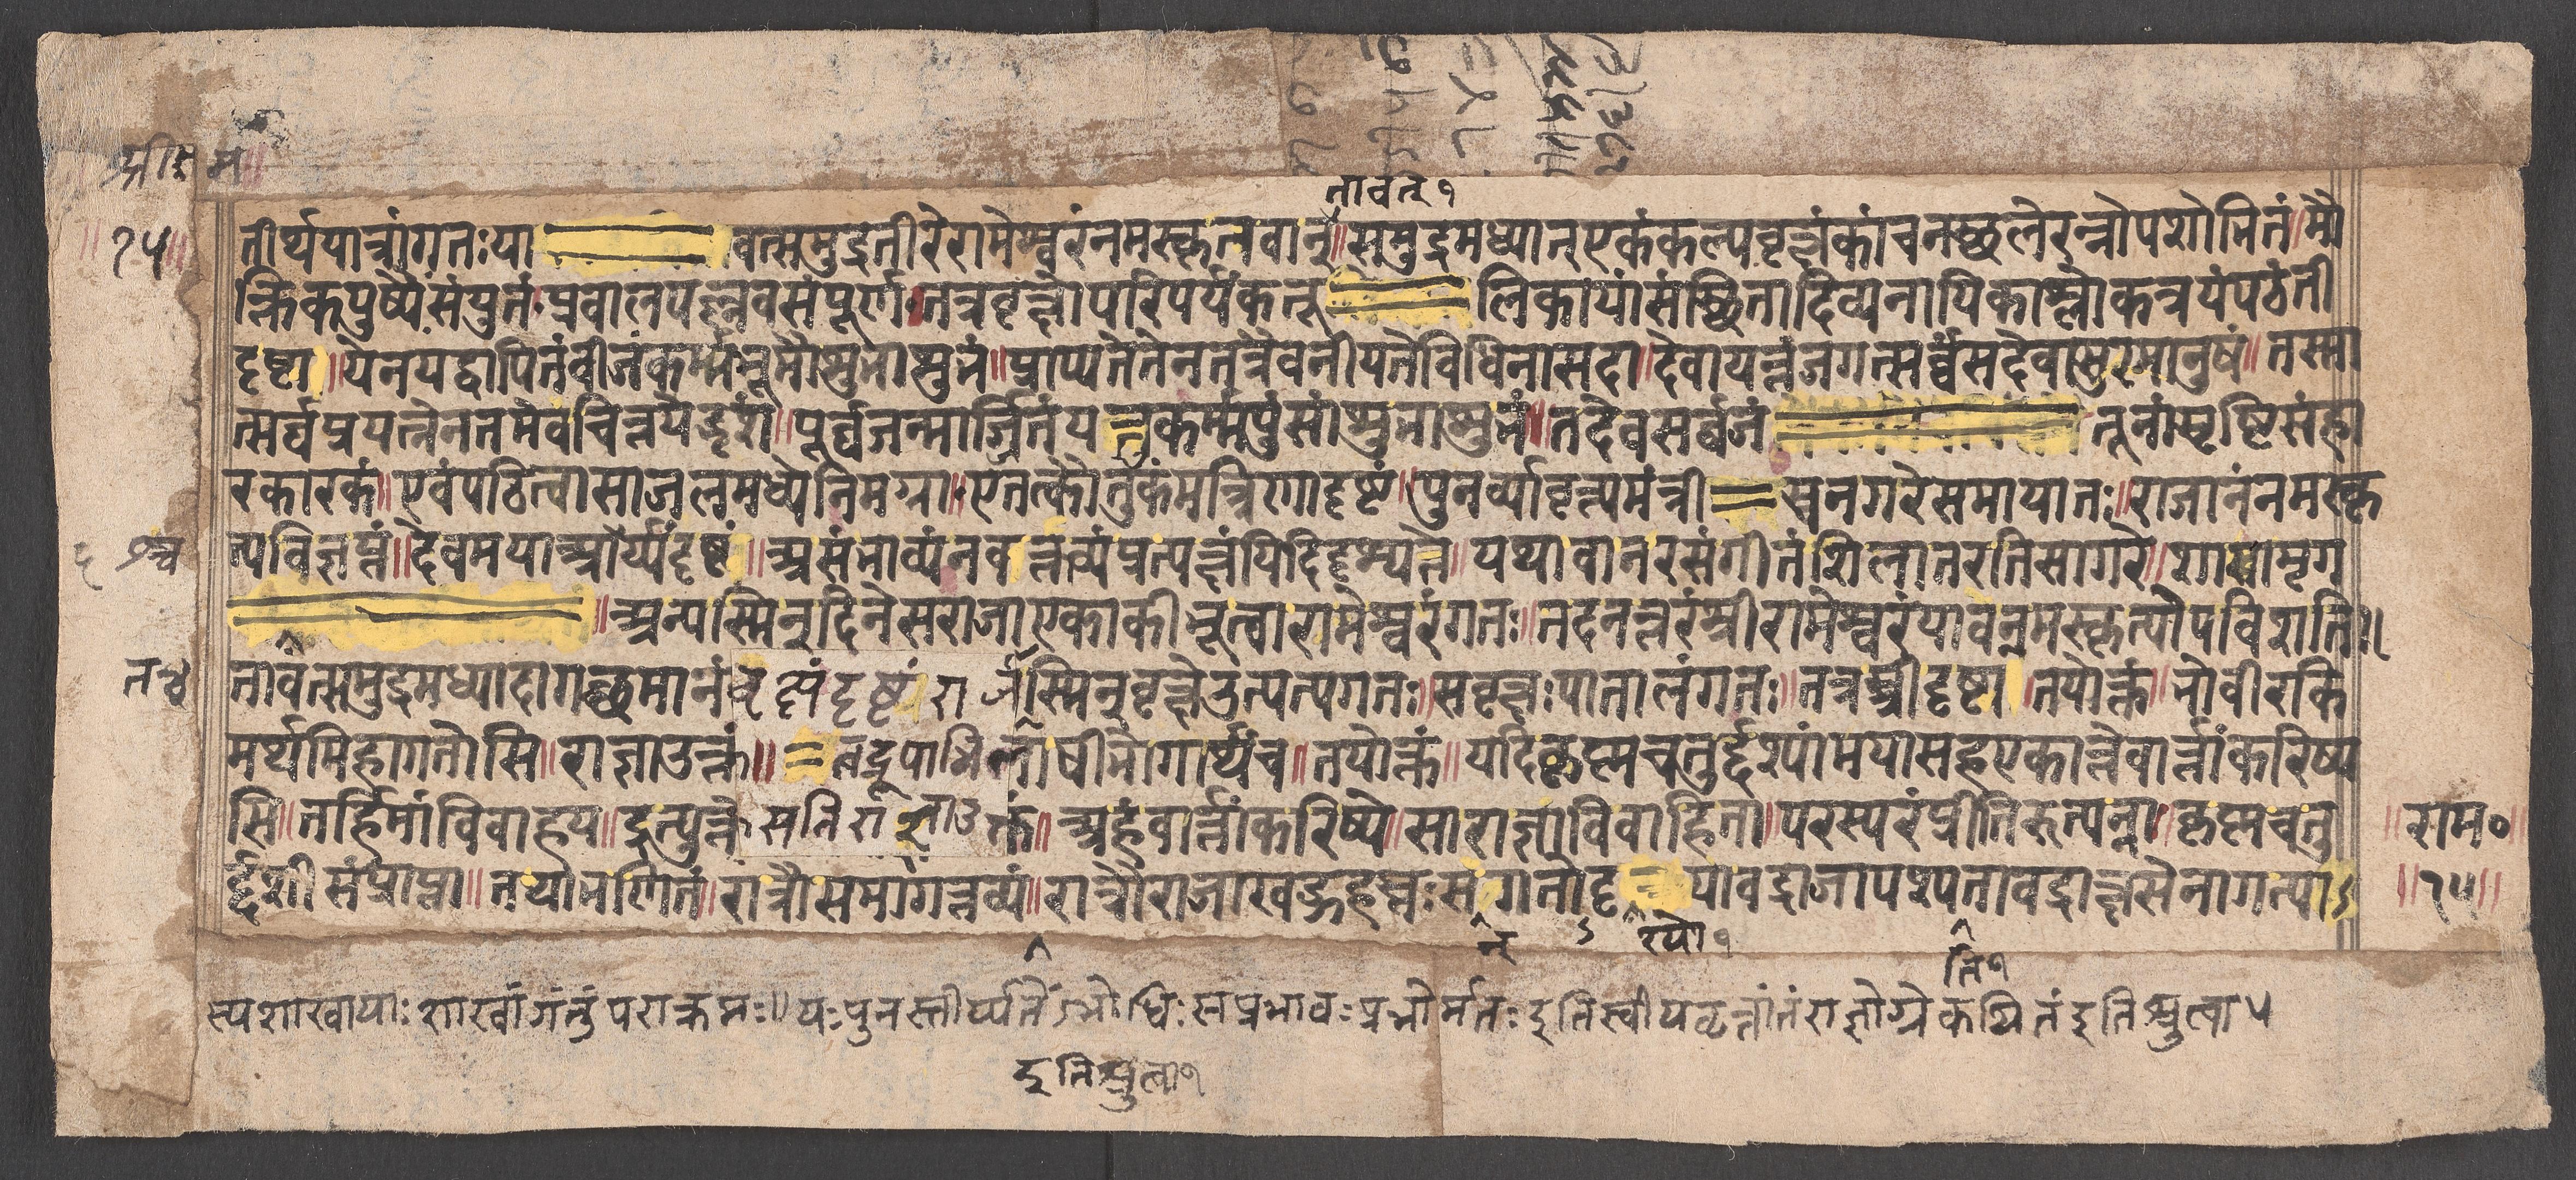 तावत् १
१५
तीर्थयात्रां गतः या वत्समुद्रतीरे रामेश्वरं नमस्कृतवान् ॥ समुद्रमध्यात् एकं कल्पवृक्षं कांचनच्छलेरत्नोपशोभितं ॥ मौ
क्तिकपुष्पैः संयुतं प्रवालपल्लवसंपूर्णं ॥ तत्र वृक्षोपरि पर्यंकतू लिकायां संस्थिता दिव्यनायिका श्लोकत्रयं पठंती
दृष्टा ॥ येन यद्वापितं बीजं कर्म्मभूमौ शुभाशुभं ॥ प्राप्यते तेन तत्रैव नीयते विधिना सदा ॥ दैवायत्तं जगत्सर्वं सदेवासुरमानुषं ॥ तस्मा
त्सर्वप्रयत्नेन तमेव चिन्तयेद्भृशं ॥ पूर्व्वजन्मार्ज्जितं यत्तु कर्म्म पुंसां शुभाशुभं ॥ तदेव सर्वजं तूनां सृष्टिसंहा
रकारकं ॥ एवं पठित्वा सा जलमध्ये निमग्ना ॥ एतत्कौतुकं मन्त्रिणा दृष्टं ॥ पुनर्व्यावृत्य मंत्री स नगरे समायातः ॥ राजानं नमस्कृ
त्य विज्ञप्तं ॥ देव मया आश्चर्य्यं दृष्टं ॥ असंभाव्यं न वक्तव्यं प्रत्यक्षं पि दि दृश्यते ॥ यथा वानरसंगीतं शिला तरति सागरे ॥ शाखामृग
॥ अन्यस्मिन् दिने स राजा एकाकी भूत्वा रामेश्वरं गतः ॥ तदनन्तरं श्रीरामेश्वरं यावन्नमस्कृत्योपविशति ॥
तावत्समुद्रमध्यादागच्छमानं वृक्षं दृष्टं रा स्मिन् वृक्षे उत्पत्य गतः ॥ स वृक्षः पातालं गतः ॥ तत्र स्त्री दृष्टा ॥ तयोक्तं ॥ भो वीर कि
मर्थमिहागतोसि ॥ राज्ञा उक्तं ॥ त्वद्रूपाभिलाषी भोगार्थं च ॥ तयोक्तं ॥ यदि कृष्णचतुर्द्दश्यां मया सह एकान्ते वार्त्तां करिष्य
सि ॥ तर्हि मां विवाहय ॥ इत्युक्ते सति रा ज्ञा उक्तं ॥ अहं वार्त्तां करिष्ये ॥ सा राज्ञा विवाहिता ॥ परस्परं प्रीतिरुत्पन्ना ॥ कृष्णचतु
र्द्दशी संप्राप्ता ॥ तया भणितं ॥ रात्रौ समागन्तव्यं ॥ रात्रौ राजा खड्गहस्तः सं गतो दृ यावद्राजा पश्य तावद्राक्षसेनागत्या ऽ
राम०
१५
न् ऽ श्यो १
ति १
स्य शाखायाः शाखां गंतुं पराक्रमः ॥ यः पुनस्तीर्य्यतेंऽभोधिः स प्रभावः प्रभोर्मतः इति स्वीयवृत्तांतं राज्ञोग्रे कथितं इति श्रुत्वा ५
इति श्रुत्वा १